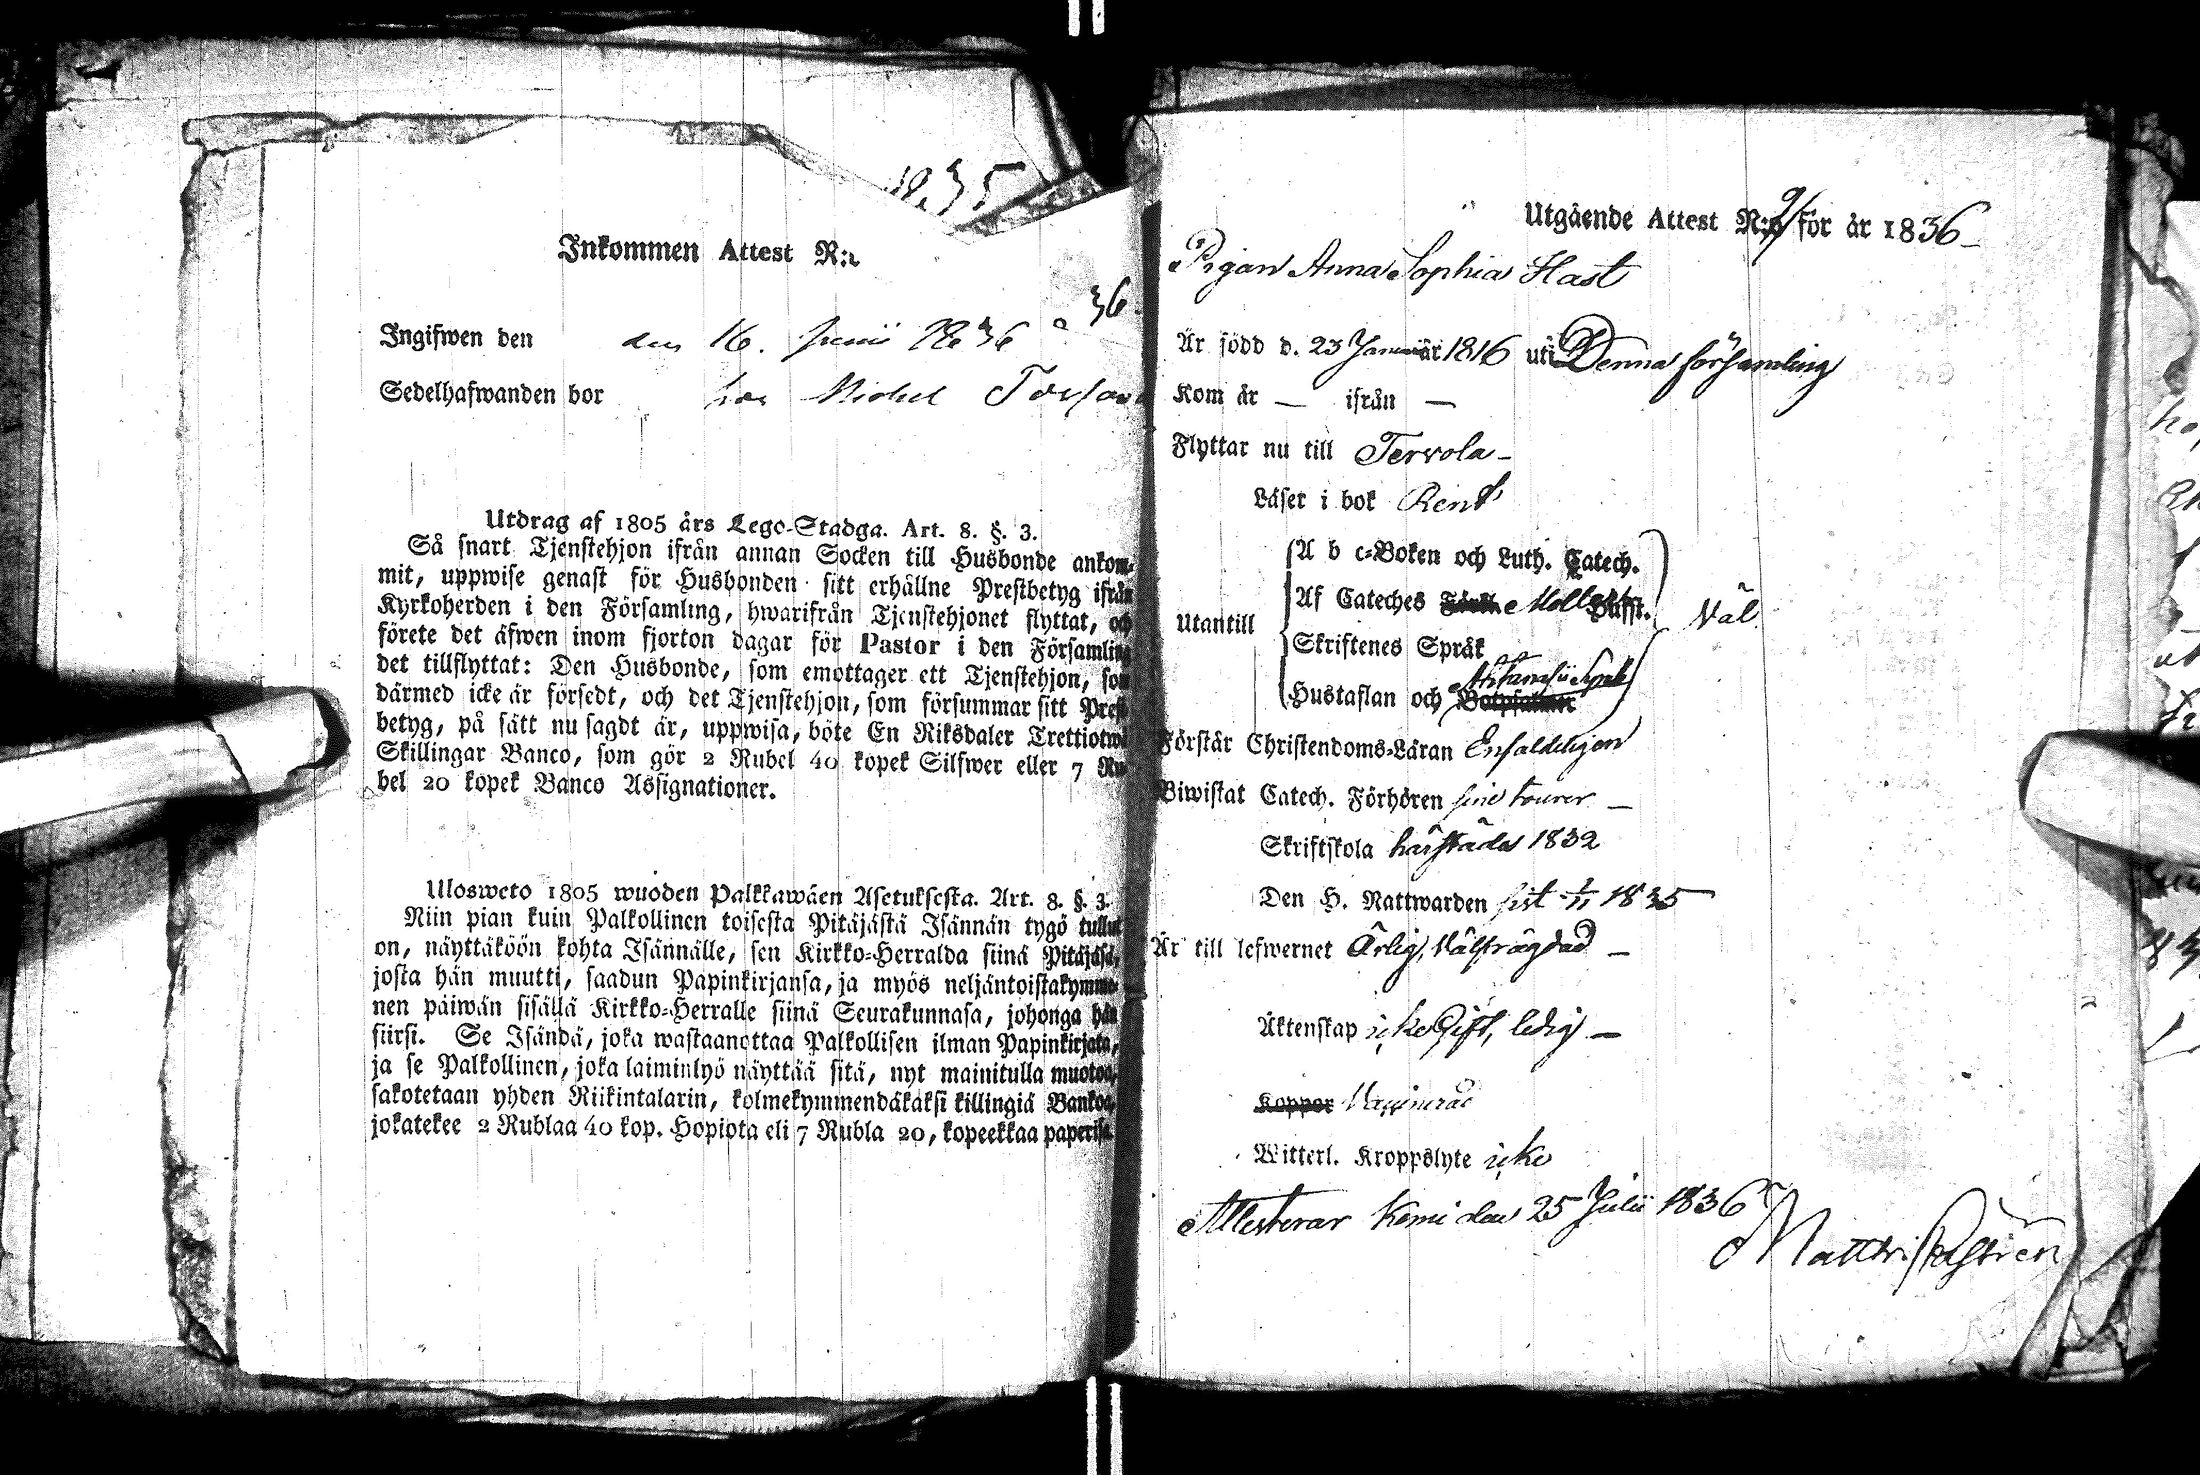 1835
Inkommen Attest N:
36.
Ingifwen den den 16. Junii 1836
Sedelhafwanden bor hos Michel
Utdrag af 1805 års Lego-Stadga. Art. 8. §. 3.
Så snart Tjenstehjon ifrån annan Socken till Husbonde ankom-
mit, uppwise genast för Husbonden sitt erhållne Prestbetyg ifrån
Kyrkoherden i den Församling, hwarifrån Tjenstehjonet flyttat, och
förete det äfwen inom fjorton dagar för Pastor i den Församling
det tillflyttat: Den Husbonde, som emottager ett Tjenstehjon, som
därmed icke är försedt, och det Tjenstehjon, som försummar sitt Prest
betyg, på sätt nu sagdt är, uppwisa, böte En Riksdaler Trettiotwå
Skillingar Banco, som gör 2 Rubel 40 kopek Silfwer eller 7 Ru-
bel 20 kopek Banco Assignationer.
Ulosweto 1805 wuoden Palkkawäen Asetuksesta. Art. 8. §. 3.
Niin pian kuin Palkollinen toisesta Pitäjästä Isännän tygö tullut
on, näyttäköön kohta Isännälle, sen Kirkko-Herralda siinä Pitäjäsä,
josta hän muutti, saadun Papinkirjansa, ja myös neljäntoistakymme-
nen päiwän sisällä Kirkko-Herralle siinä Seurakunnasa, johonga hän
siirsi. Se Isändä, joka wastaanottaa Palkollisen ilman Papinkirjata,
ja se Palkollinen, joka laiminlyö näyttää sitä, nyt mainitulla muotoa,
sakotetaan yhden Riikintalarin, kolmekymmendäkaksi killingiä Bankoa,
jokatekee 2 Rublaa 40 kop. Hopiota eli 7 Rubla 20, kopeekkaa paperisa.
Utgående Attest N:o 9/ för år 1836
Pigan Anna Sophia Hast
Är född d. 23 Januarii 1816 uti Denna församling
Kom år — ifrån —
Flyttar nu till Tervola
Läser i bok Rent
A b c-Boken och Luth. Catech.
Af Cateches
Utantill Wäl
Skriftenes Språk
Hustaflan och
Förstår Christendoms-Läran Enfaldeligen
Biwistat Catech. Förhören sine tourer —
Skriftskola härstädes 1832
Den H. Nattwarden sist 1/11 1835
Är till lefwernet Ärlig, Wälfrägdad —
Äktenskap icke Gift, ledig —
Koppor Vaccinerad
Witterl. Kroppslyte icke
Attesterar Kemi den 25 Julii 1836
Matths Castrén